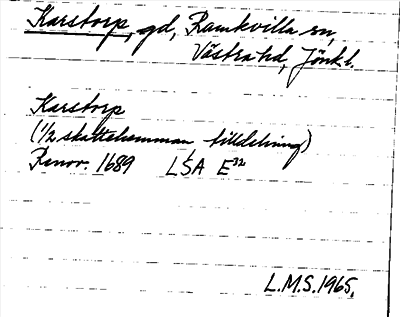 Karstorp, gd, Ramkvilla sn,
Västra hd, Jönk l.
Karstorp
(1/2 skattehemman, tilldelning)
Renov. 1689 LSA E32
L.M.S. 1965.